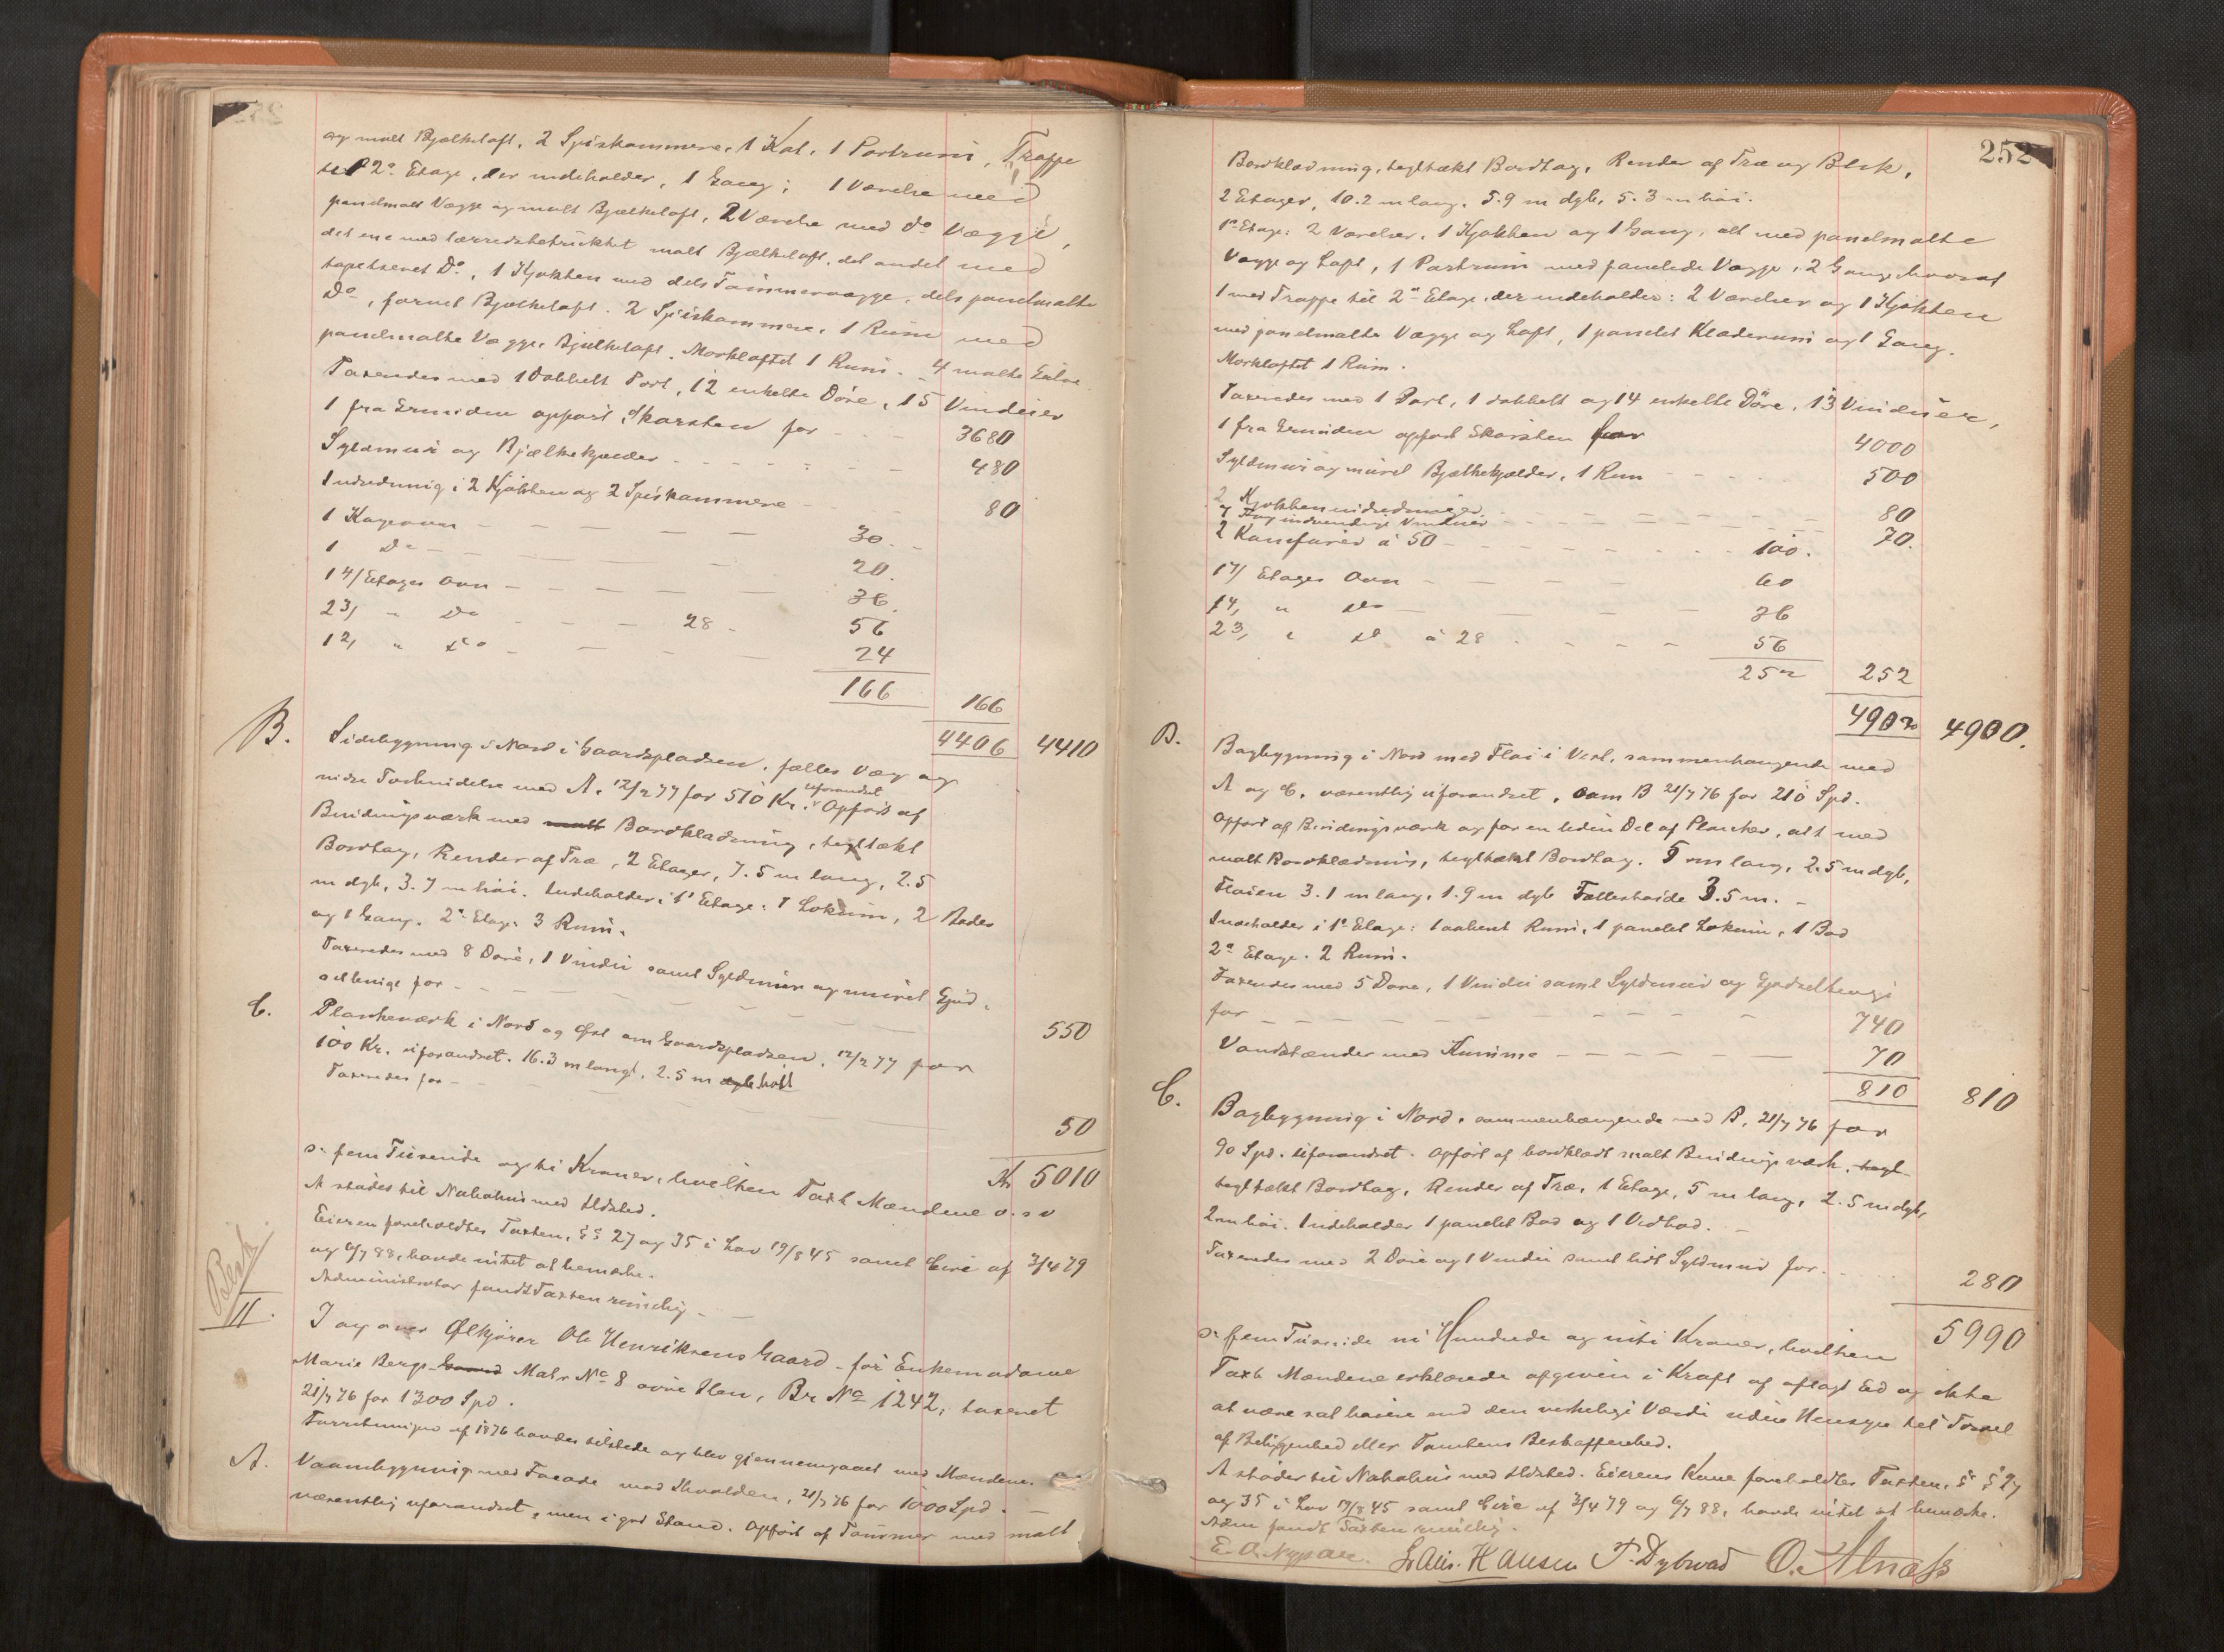 og malt Bjælkeloft, 2 Spiskammere, 1 Kot, 1 Portrum, Trappe
til 2a Etage, der indeholder, 1 Gang; 1 Værelse med
panelmalt Vægge og malt Bjælkeloft, 2 Værelse med do Vægge,
det ene med lærredsbetrukket malt Bjælkeloft, det andet med
tapetseret Do, 1 Kjøkken med dels Tømmervægge, dels panelmalte
Do, fornet Bjælkeloft. 2 Spiskammere, 1 Rum med
panelmalte Vægge, Bjælkeloft. Mørkloftet 1 Rum. 4 malte Gulve.
Taxeredes med 1 dobbelt Port, 12 enkelte Døre, 15 Vinduer
1 fra Grunden opført Skorsten for - - - 3680
Syldmur og Bjælkekjelder - - - - - - 480
Indredning i 2 Kjøkken og 2 Spiskammere - - 80
1 Kageovn - - - - - 30. -
1 Do - - - - - - 20.
1 4/ Etages Ovn - - - - - 36.
2 3/ " Do - - - 28 - 56
1 2/ " Do - - - - 24
166 166
4406 4410
B. Sidebygning i Nord i Gaardspladsen, fælles Væg og
nedre Forbindelse med A, 12/2 77 for 510 Kr. uforandret Opført af
Bindingsværk med malt Bordklædning, tegltækt
Bordtag, Render af Træ, 2 Etager, 7.5 m lang, 2.5
m dyb, 3.7 m høi. Indeholder i 1' Etage: 1 Lokum, 2 Boder
og 1 Gang. 2a Etage 3 Rum.
Taxeredes med 8 Døre, 1 Vindu samt Syldmur og muret Gjød-
selbinge for - - - - - - - 550
C. Plankeværk i Nord og Øst om Gaardspladsen, 12/2 77 for
100 Kr. uforandret. 16.3 m langt, 2.5 m dyb høit
Taxeredes for - - - - - - 50
Kr 5010
s: fem Tusende og ti Kroner, hvilken Taxt Mændene o.s.v
A stødes til Nabohus med Ildsted.
Eieren foreholdtes Taxten, §§ 27 og 35 i Lov 19/8 45 samt Circ af 3/4 79
og 6/7 88, havde intet at bemærke.
Administrator fandt Taxten rimelig -
Besk
II. I og over Ølkjører Ole Henriksens Gaard - før Enkemadame
Marie Bergs Gaard Matr No 8 øvre Ilen, Br No 1242, taxeret
21/7 76 for 1300 Spd.
Forretningen af 1876 havdes tilstede og blev gjennemgaaet med Mændene.
A. Vaanbygning med Facade mod Ilevolden, 21/7 76 for 1000 Spd. -
væsentlig uforandret, men i god Stand. Opført af Tømmer med malt
252
Bordklædning, tegltækt Bordtag, Render af Træ og Blik,
2 Etager, 10.2 m lang, 5.9 m dyb, 5.3 m høi.
1e Etage: 2 Værelser, 1 Kjøkken og 1 Gang, alt med panelmalte
Vægge og Loft, 1 Portrum med panelede Vægge, 2 Gange hvoraf
1 med Trappe til 2a Etage, der indeholder: 2 Værelser og 1 Kjøkken
med panelmalte Vægge og Loft, 1 panelet Klæderum og 1 Gang.
Mørkloftet 1 Rum.
Taxeredes med 1 Port, 1 dobbelt og 14 enkelte Døre, 13 Vinduer,
1 fra Grunden opført Skorsten for 4000
Syldmur og muret Bjælkekjælder, 1 Rum - - - 500
2 Kjøkkenindredninger - - - - - 80
7 Fag indvendige Vinduer - - - - - 70.
2 Komfurer à 50 - - - - - 100.
1 7/ Etages Ovn - - - - 60
1 4/ " Do - - - - 36
2 3/ " Do à 28 - - - - 56
252 252
4902 4900.
B. Bagbygning i Nord med Fløi i Vest, sammenhængende med
A og C, væsentlig uforandret, som B 21/7 76 for 210 Spd.
Opført af Bindingsværk og for en liden Del af Planker, alt med
malt Bordklædning, tegltækt Bordtag. 5 m lang, 2.5 m dyb,
Fløien 3.1 m lang, 1.9 m dyb Fælleshøide 3.5 m. -
Indeholder i 1e Etage: 1 aabent Rum, 1 panelet Lokum, 1 Bod
2a Etage. 2 Rum.
Taxeredes med 5 Døre, 1 Vindu samt Syldmur og Gjødselbinge
for - - - - - - - - 740
Vandstænder med Kumme - - - - - 70
810 810
C. Bagbygning i Nord, sammenhængende med B, 21/7 76 for
90 Spd. uforandret. Opført af bordklædt malt Bindingsværk, tegl
tegltækt Bordtag, Render af Træ, 1 Etage, 5 m lang, 2.5 m dyb,
2 m høi. Indeholder 1 panelet Bod og 1 Vedbod. -
Taxeredes med 2 Døre og 1 Vindu samt lidt Syldmur for. 280
5990
s: fem Tusinde ni Hundrede og niti Kroner, hvilken
Taxt Mændene erklærede afgiven i Kraft af aflagt Ed og ikke
at være sat høiere end den virkelige Værdi uden Hensyn til Forael
af Beliggenhed eller Tomtens Beskaffenhed.
A støder til Nabohus med Ildsted. Eierens Kone foreholdtes Taxten, §§ 27
og 35 i Lov 19/8 45 samt Circ af 3/4 79 og 6/7 88, havde intet at bemærke.
Adm fandt Taxten rimelig.
E. A. Nypan. Laur. Hansen P. Dybvad O. Alnæss